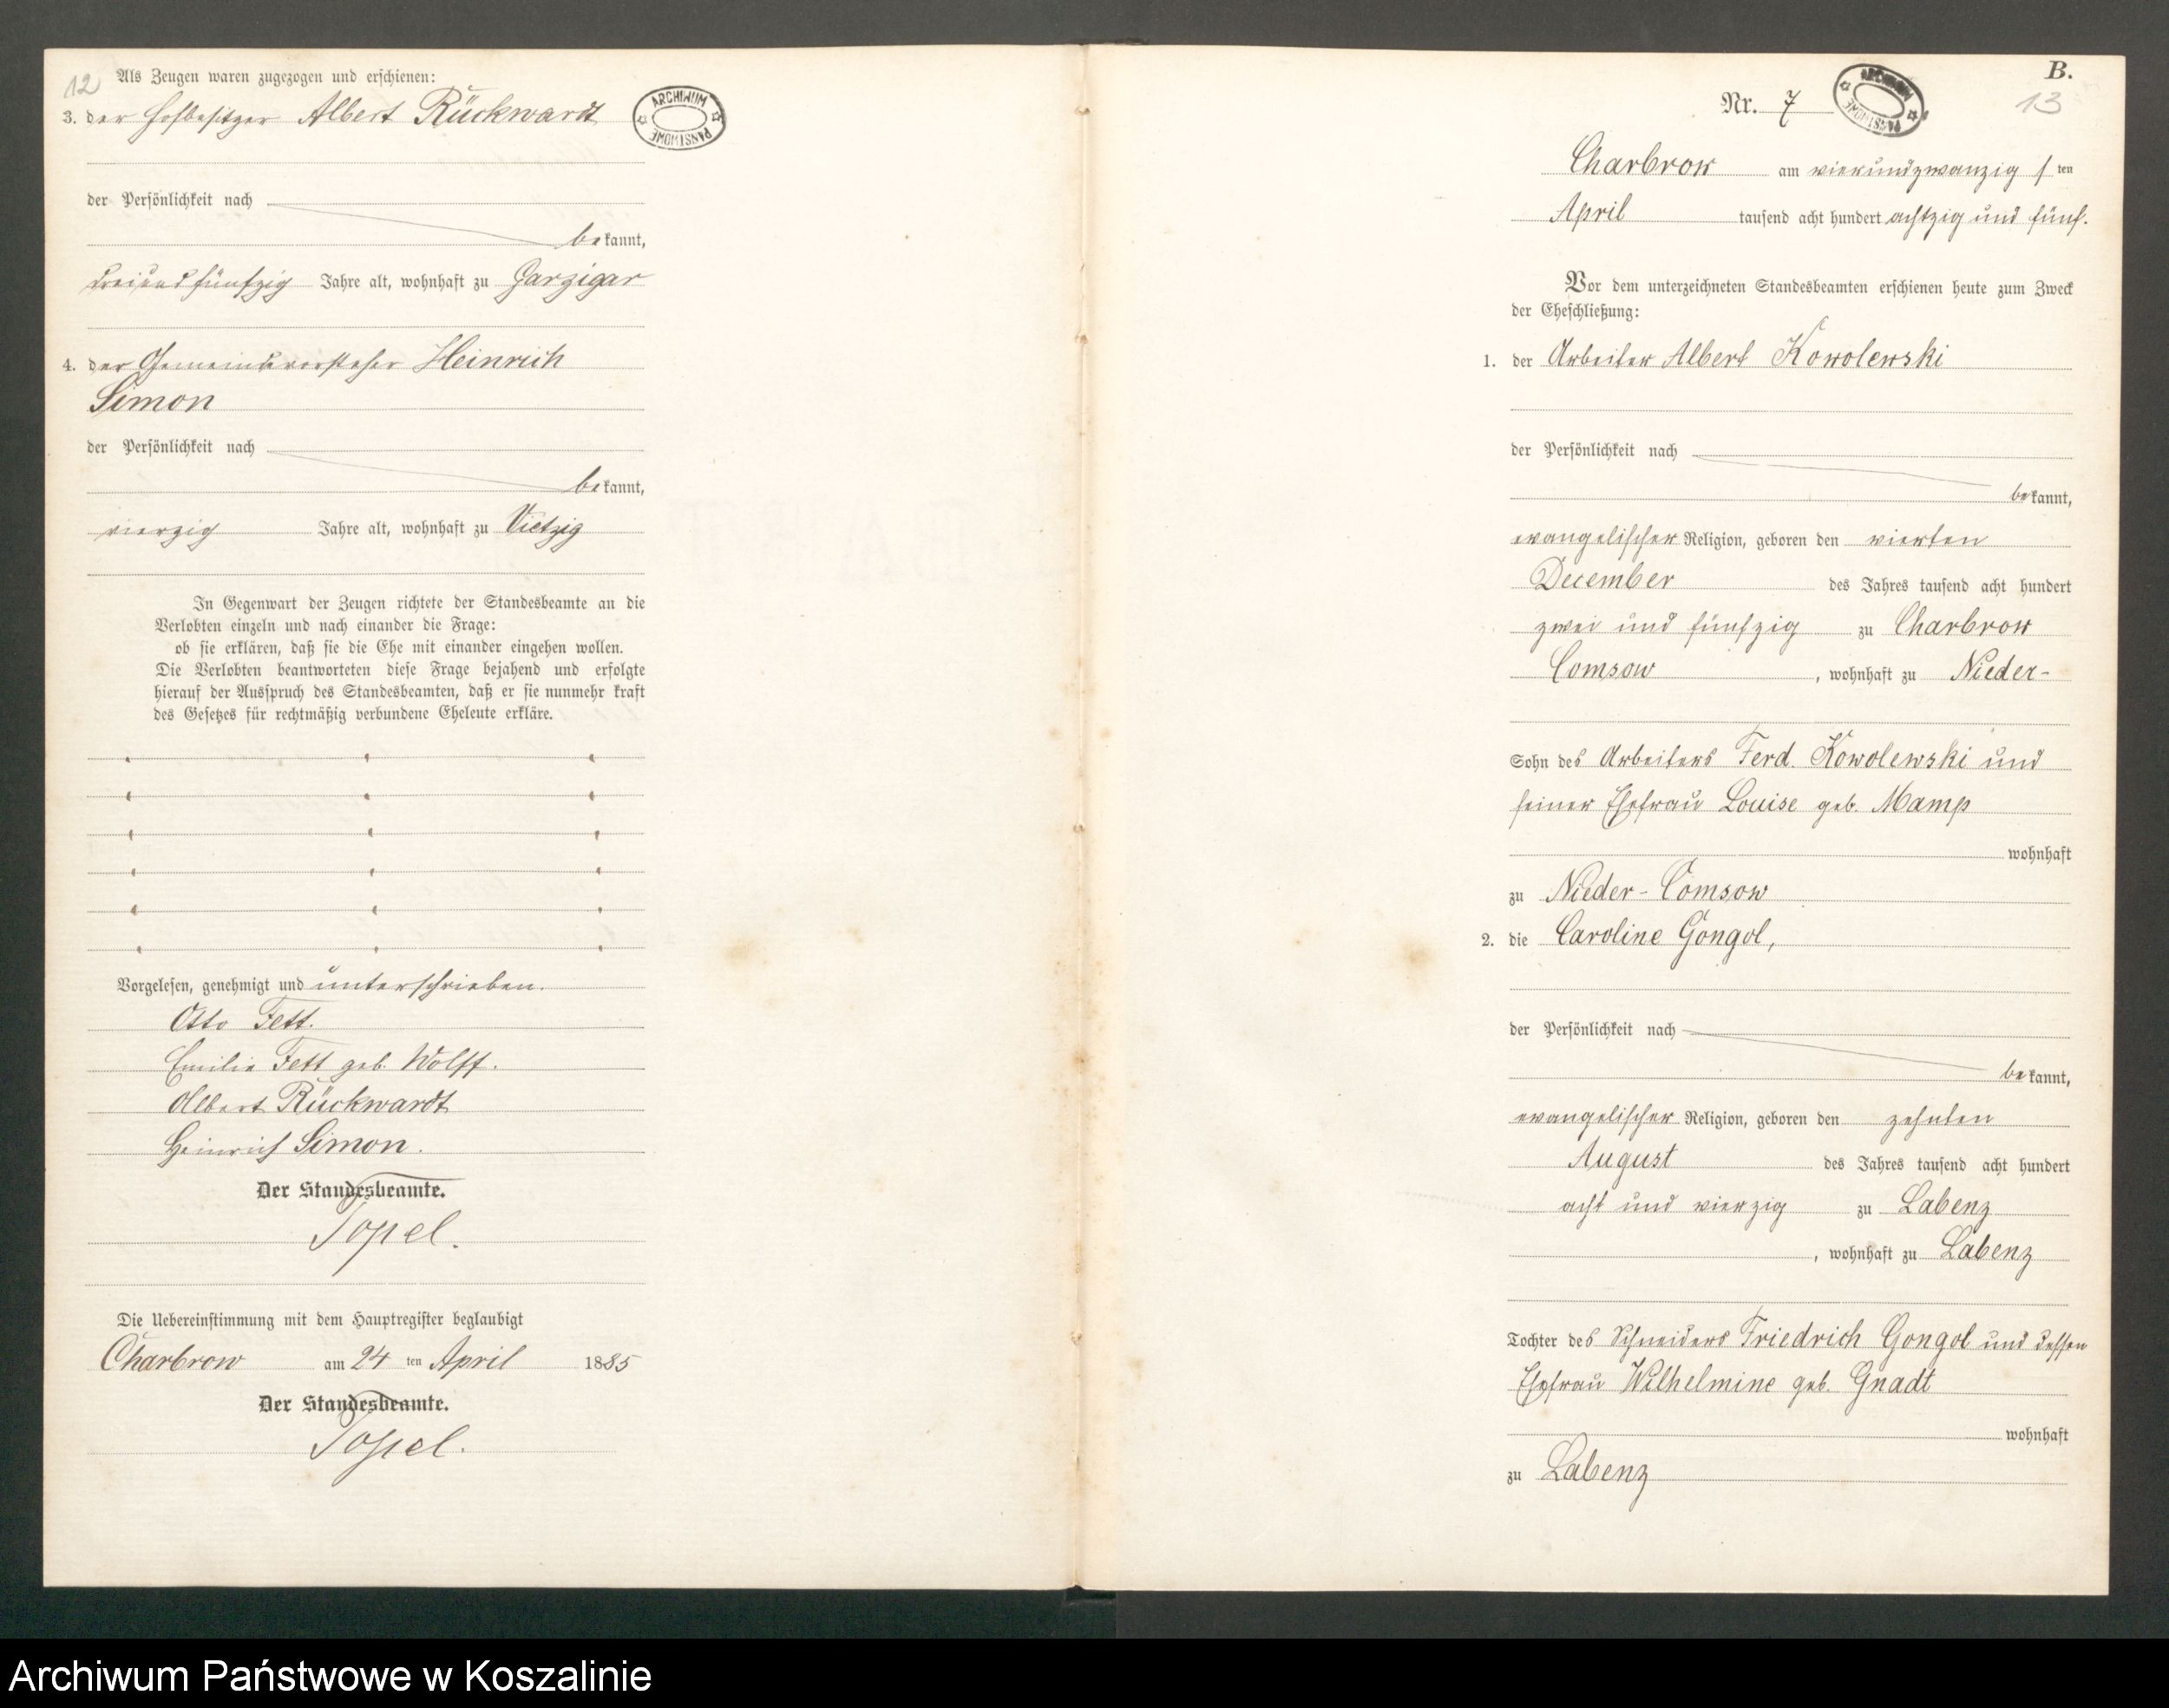 12
Als Zeugen waren zugezogen und erschienen:
3. der Hofbesitzer Albert Rückwardt
ARCHIWUM PAŃSTWOWE
der Persönlichkeit nach
bekannt,
dreiundfünfzig Jahre alt, wohnhaft zu Garzigar
4. der Gemeindevorsteher Heinrich
Simon
der Persönlichkeit nach
bekannt,
vierzig Jahre alt, wohnhaft zu Vietzig
In Gegenwart der Zeugen richtete der Standesbeamte an die
Verlobten einzeln und nach einander die Frage:
ob sie erklären, daß sie die Ehe mit einander eingehen wollen.
Die Verlobten beantworteten diese Frage bejahend und erfolgte
hierauf der Ausspruch des Standesbeamten, daß er sie nunmehr kraft
des Gesetzes für rechtmäßig verbundene Eheleute erkläre.
Vorgelesen, genehmigt und unterschrieben.
Otto Fett.
Emilie Fett geb. Wolff.
Albert Rückwardt
Heinrich Simon.
Der Standesbeamte.
Topel.
Die Uebereinstimmung mit dem Hauptregister beglaubigt
Charbrow am 24 ten April 1885
Der Standesbeamte.
Topel.
B.
13
Nr. 7
ARCHIWUM PAŃSTWOWE
Charbrow am vierundzwanzig sten
April tausend acht hundert achtzig und fünf.
Vor dem unterzeichneten Standesbeamten erschienen heute zum Zweck
der Eheschließung:
1. der Arbeiter Albert Kowolewski
der Persönlichkeit nach
bekannt,
evangelischer Religion, geboren den vierten
December des Jahres tausend acht hundert
zwei und fünfzig zu Charbrow
Comsow, wohnhaft zu Nieder-
Sohn des Arbeiters Ferd. Kowolewski und
seiner Ehefrau Louise geb. Mamp
wohnhaft
zu Nieder-Comsow
2. die Caroline Gongol,
der Persönlichkeit nach
bekannt,
evangelischer Religion, geboren den zehnten
August des Jahres tausend acht hundert
acht und vierzig zu Labenz
, wohnhaft zu Labenz
Tochter des Schneiders Friedrich Gongol und dessen
Ehefrau Wilhelmine geb. Gnadt
wohnhaft
zu Labenz
Archiwum Państwowe w Koszalinie